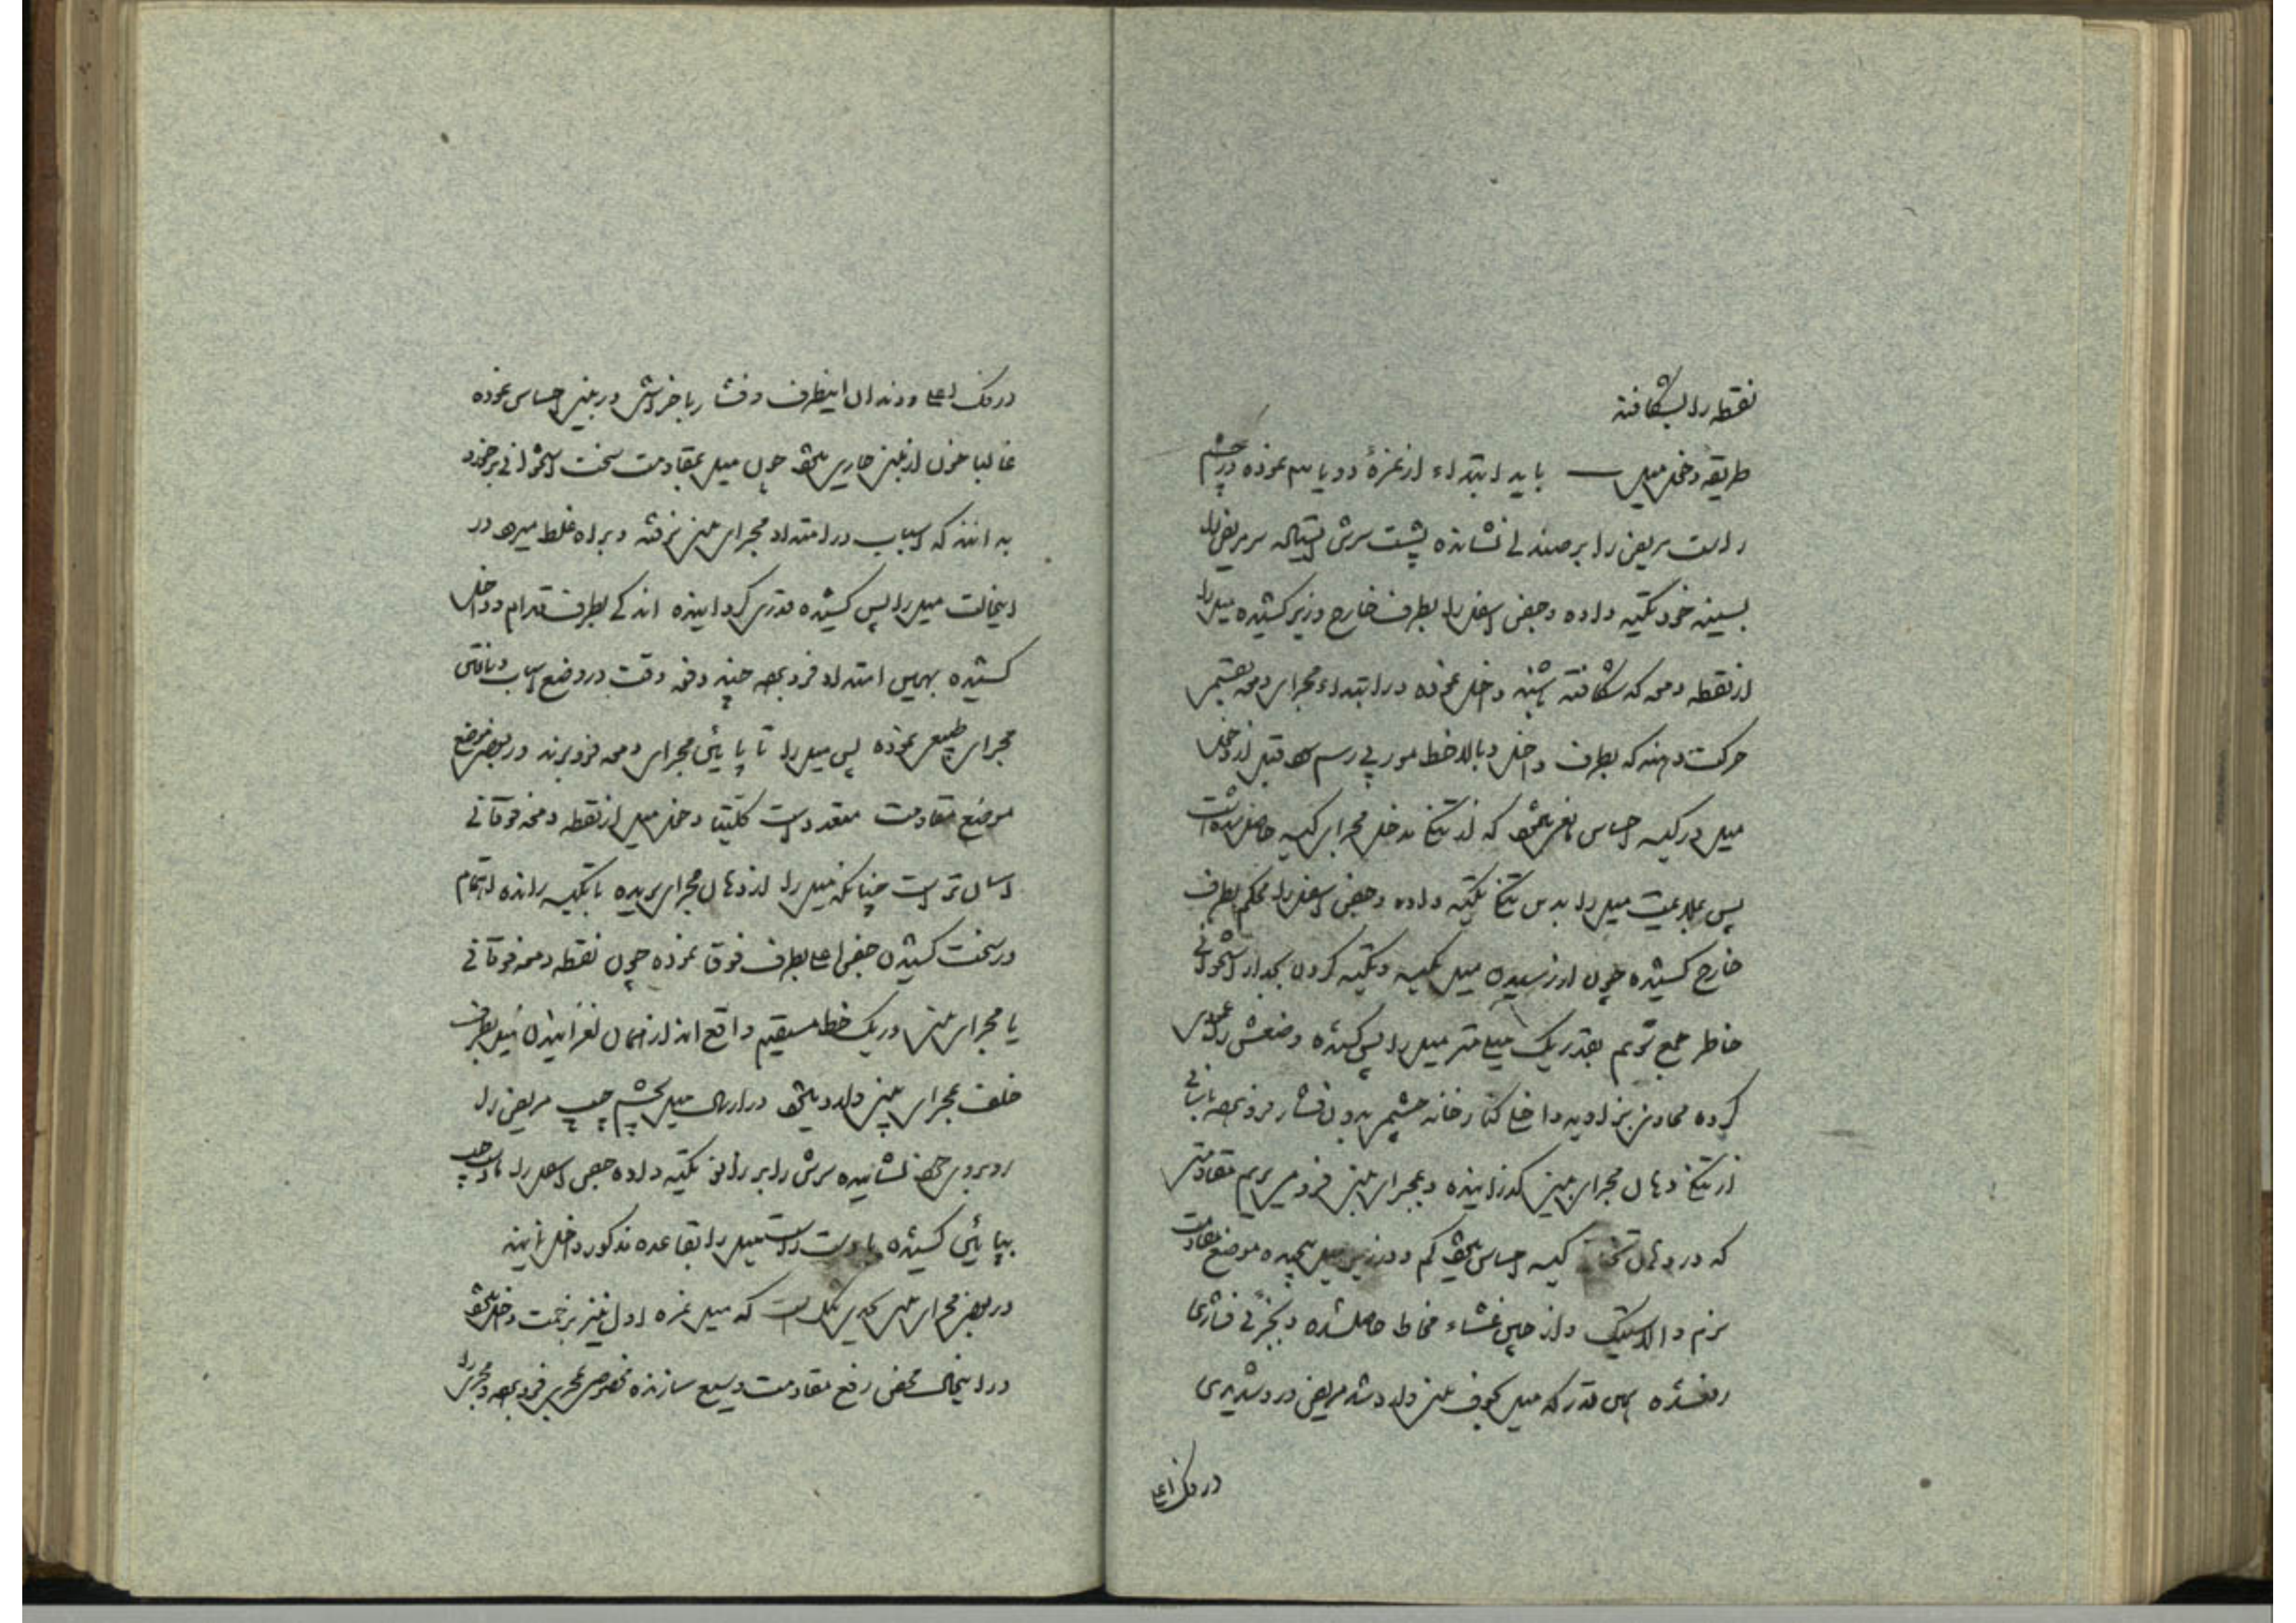 نقطه را بشکافند
طریقه دخل میل باید ابتداء از نمرهٔ دو یا سه نموده در چشم
راست مریض را بر صندلی نشانده پشت سرش ایستاده سر مریض را
بسینه خود تکیه داده و جفن اسفل را بطرف خارج و زیر کشیده میل را
از نقطه دمعه که شکافته باشند داخل نموده در ابتداء مجرای دمعه بقسمی
حرکت دهند که بطرف داخل و بالا خط موربی رسم شود قبل از دخل
میل در کیسه احساس مانعی میشود که از تنگی مدخل مجرای کیسه حاصل شده است
پس بملایمت میل را بدین تنگی تکیه داده و جفن اسفل را محکم بطرف
خارج کشیده چون از رسیدن میل بکیسه و تکیه کردن بجدار استخوانی
خاطر جمع شویم بقدر یک میلی متر میل را پس کشیده وضعش را عمودی
کرده محاذی بزاویه داخلی کنار خانه چشم بدون فشار فرو نموده بآسانی
از تنگی دهان مجرای بینی گذرانیده و بمجرای بینی فرو میبریم مقاومتی
که در دهان تنگ کیسه احساس میشود کم و در زیر میل پیچیده موضع مقاومت
نرم و الاستیک و از چین غشاء مخاط حاصل شده و بجزئی فشاری
رفع شده همین قدر که میل بجوف بینی وارد شد مریض درد شدیدی
در فک اعلی
در فک اعلی و دندان اینطرف و فشار با خراش در بینی احساس نموده
غالبا خون از بینی جاری میشود چون میل بمقاومت سخت استخوانی برخورد
بدانند که اسباب در امتداد مجرای بینی نرفته و براه غلط میرود در
اینحالت میل را پس کشیده قدری گردانیده اندکی بطرف قدام و داخل
کشیده بهمین امتداد فرو نموده چند دفعه دقت در وضع اسباب و یافتن
مجرای طبیعی نموده پس میل را تا پائین مجرای دمعه فرو برند در بعضی مواضع
موضع مقاومت متعدد است کلیتا دخل میل از نقطه دمعه فوقانی
آسان تر است چنانکه میل را از دهان مجرای بریده تا بکیسه رانده اهتمام
در سخت کشیدن جفن اعلی بطرف فوق نموده چون نقطه دمعه فوقانی
با مجرای بینی در یک خط مستقیم واقع اند از همان لغزانیدن میل بطرف
خلف بمجرای بینی وارد میشود در ارسال میل بچشم چپ مریض را
روبروی خود نشانیده سرش را بر زانو تکیه داده جفن اسفل را با دست چپ
بپائین کشیده با دست راست میل را بقاعده مذکور داخل نمایند
در بعضی مجرای بینی بحدی تنگ است که میل نمره اول نیز بزحمت داخل میشود
در اینحال محض رفع مقاومت وسیع سازنده مخصوصی بمجری فرو نموده و مجری را